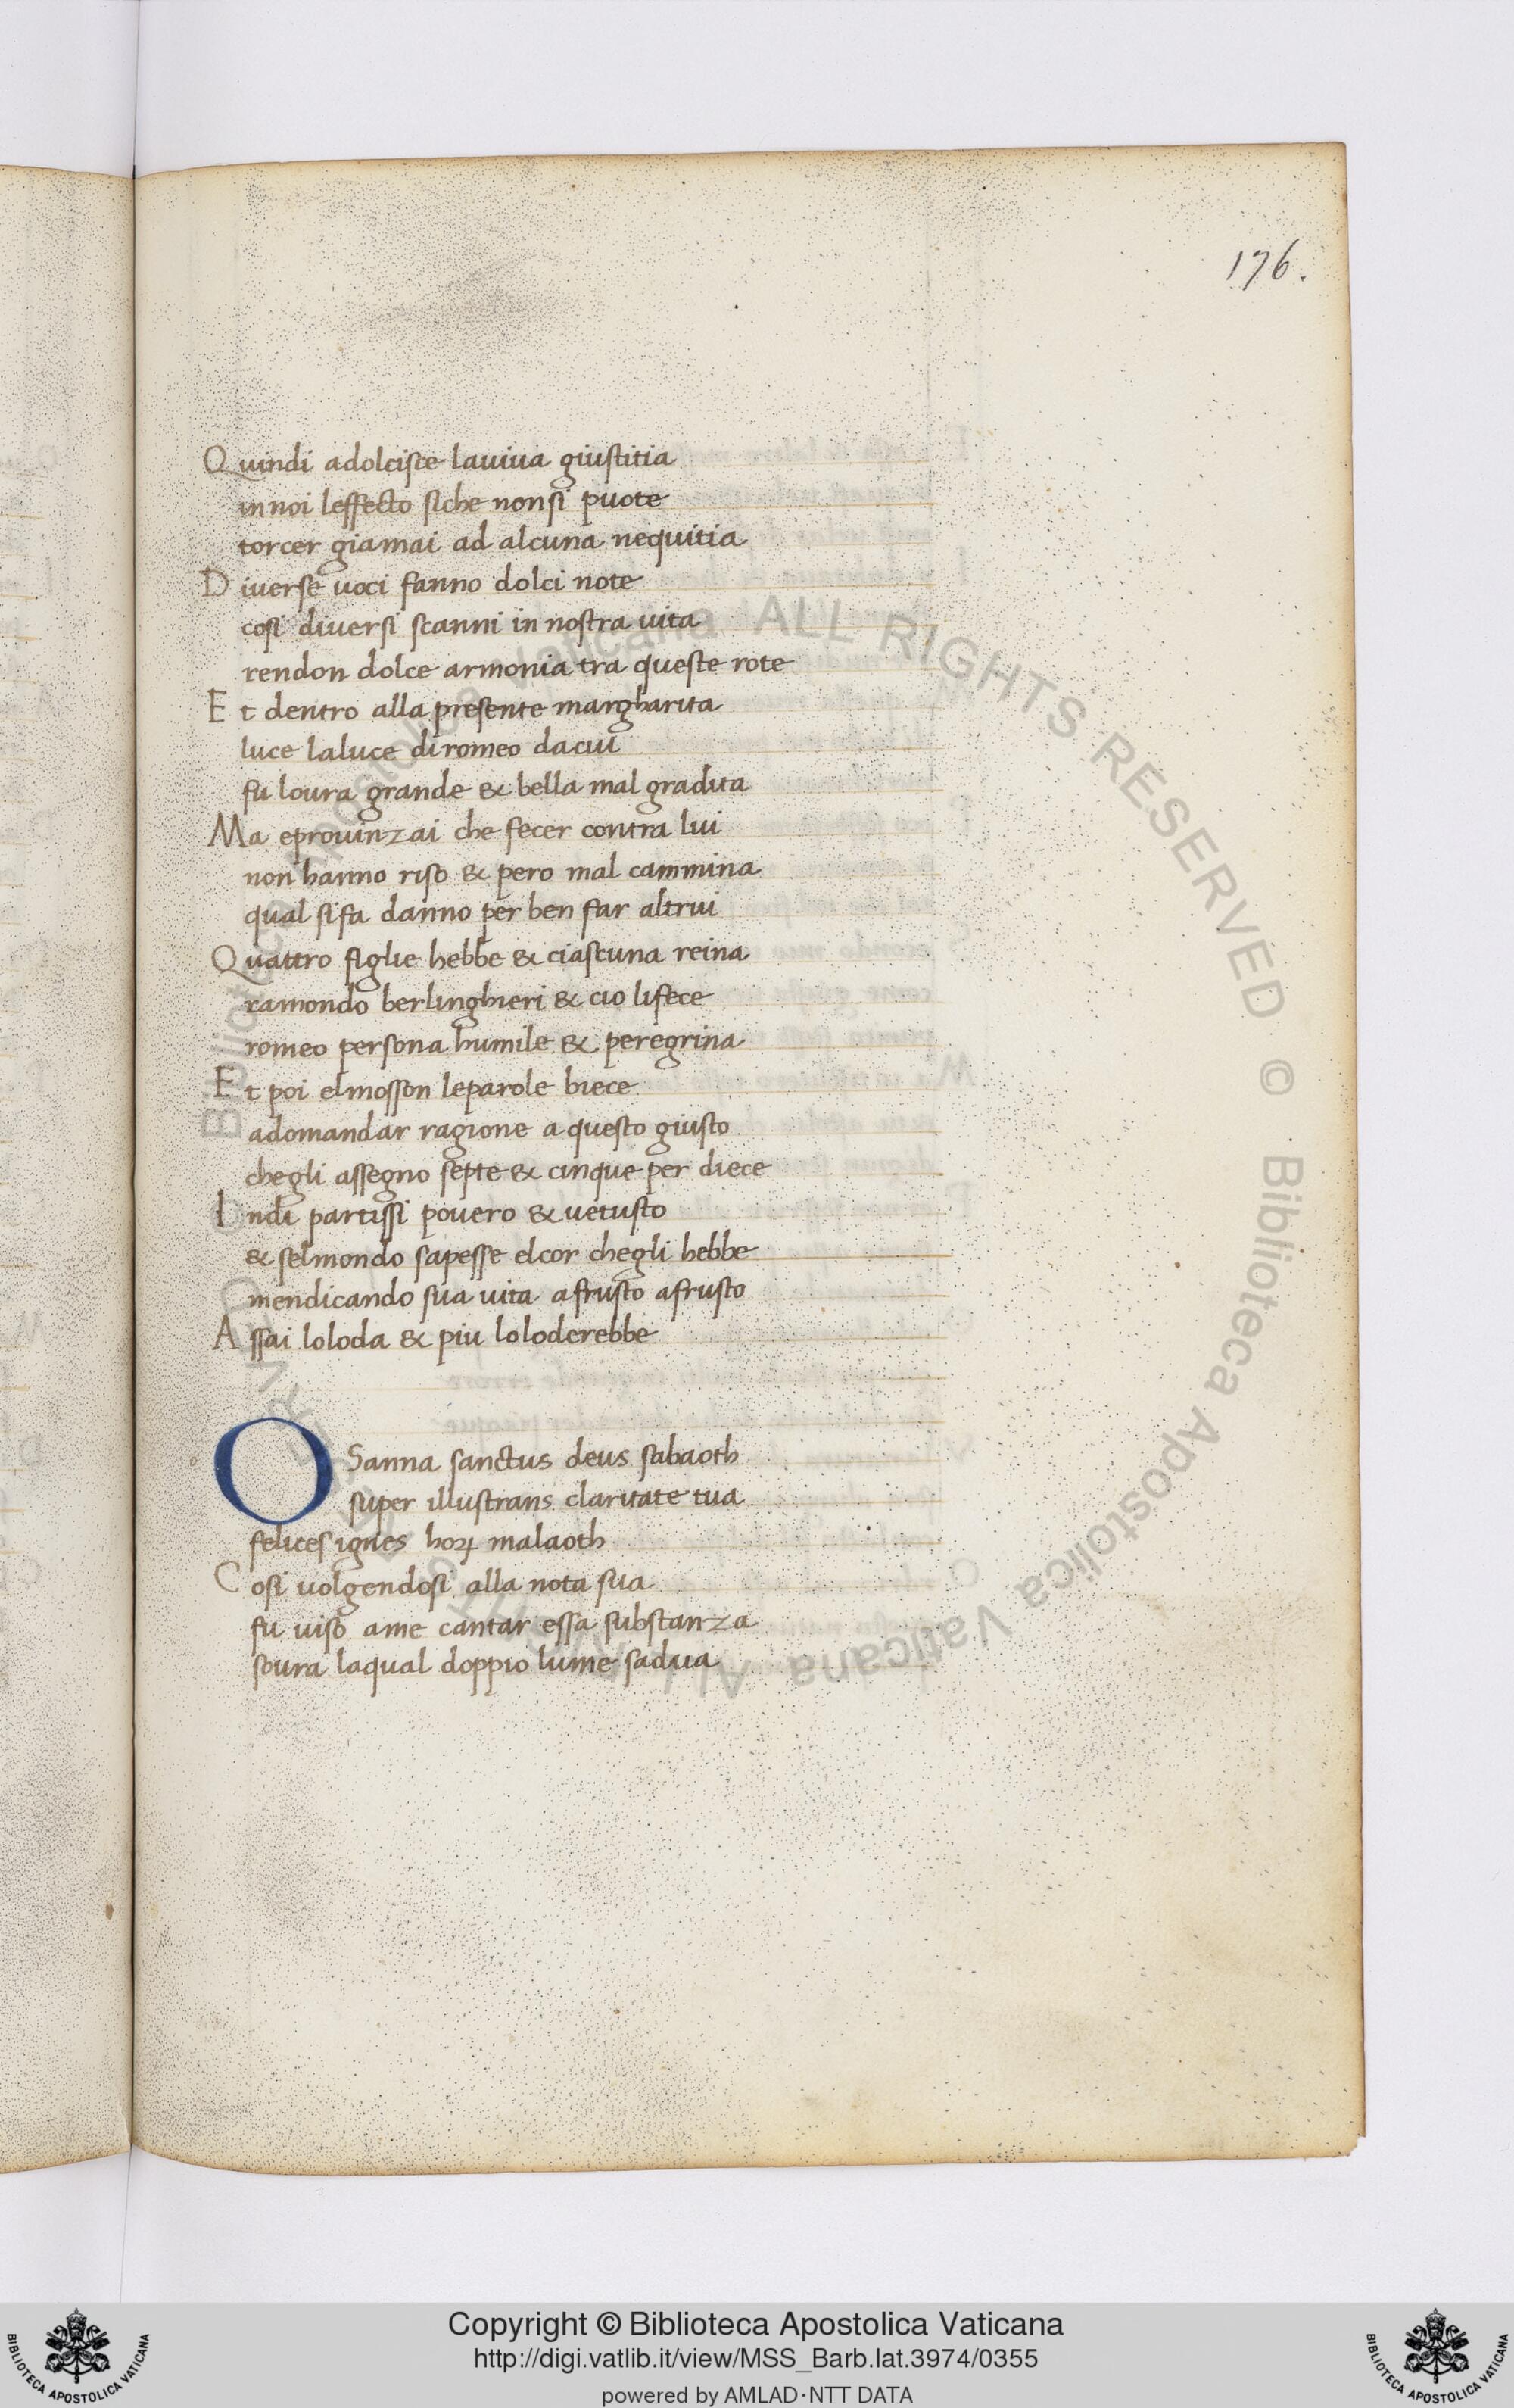 176.
Quindi adolcisce lauiua giustitia
innoi leffecto siche nonsi puote
torcer giamai ad alcuna nequitia
Diuerse uoci fanno dolci note
cosi diuersi scanni in nostra uita
rendon dolce armonia tra queste rote
Et dentro alla presente margharita
luce laluce diromeo dacui
fu loura grande & bella mal gradita
Ma eprouinzai che fecer contra lui
non hanno riso & pero mal cammina
qual sifa danno per ben far altrui
Quattro figlie hebbe & ciascuna reina
ramondo berlinghieri & cio lifece
romeo persona humile & peregrina
Et poi elmosson leparole biece
adomandar ragione a questo giusto
chegli assegno septe & cinque per diece
Indi partissi pouero & uetusto
& selmondo sapesse elcor chegli hebbe
mendicando sua uita afrusto afrusto
Assai loloda & piu loloderebbe
OSanna sanctus deus sabaoth
super illustrans claritate tua
felices ignes horꝝ malaoth
Cosi uolgendosi alla nota sua
fu uiso ame cantar essa substanza
soura laqual doppio lume sadua
Biblioteca Apostolica Vaticana ALL RIGHTS RESERVED © Biblioteca Apostolica Vaticana ALL RIGHTS RESERVED ©
Copyright © Biblioteca Apostolica Vaticana
http://digi.vatlib.it/view/MSS_Barb.lat.3974/0355
powered by AMLAD·NTT DATA
BIBLIOTECA APOSTOLICA VATICANA
BIBLIOTECA APOSTOLICA VATICANA